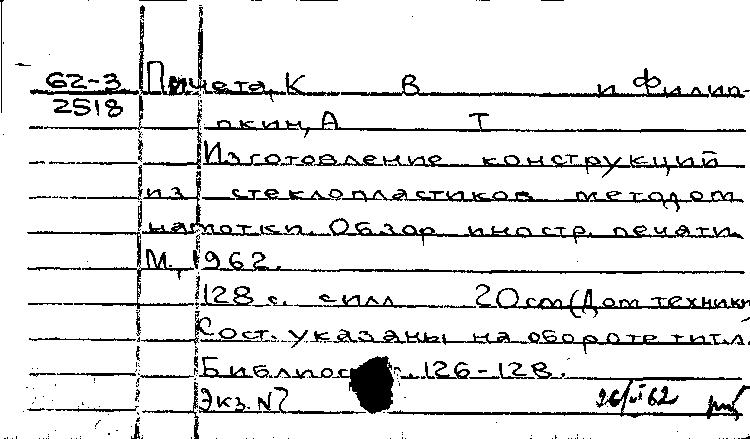 62-3 Пичета, К В и Филип-
2518 пкин, А Т
Изготовление конструкций
из стеклопластиков методом
намотки. Обзор иностр. печати.
М., 1962.
128 с. с илл 20 cm (Дом техники
Сост. указаны на обороте тит. л.
126-128.
Экз. N
26/VI 62